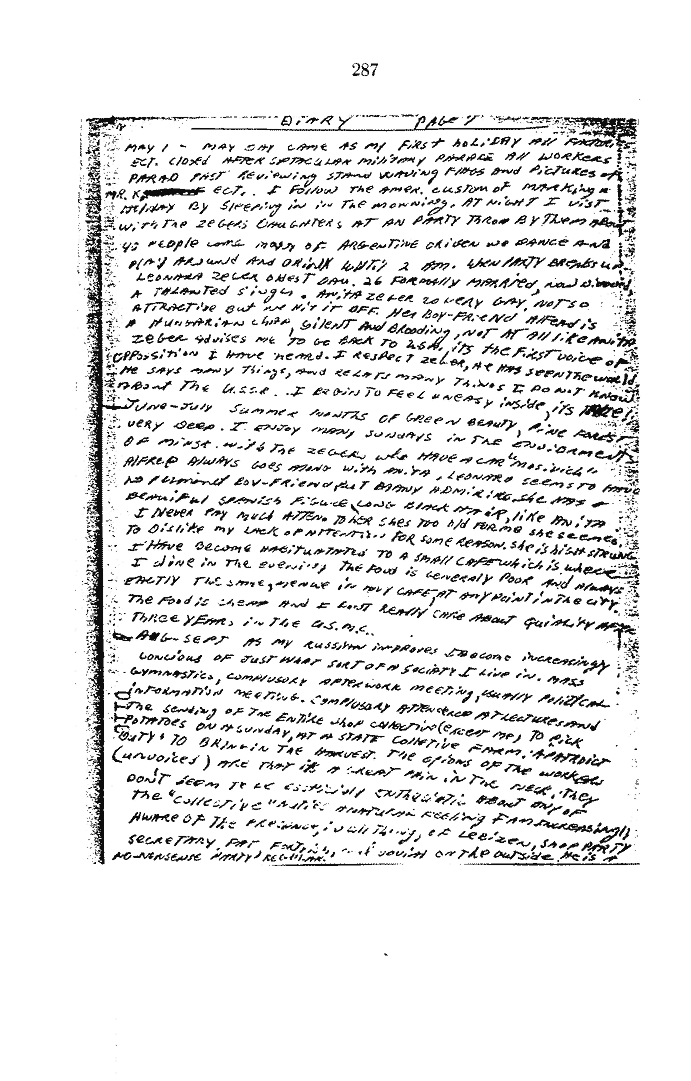 287
DIARY PAGE 7
MAY 1 - MAY DAY CAME AS MY FIRST HOLIDAY All FACTORIES
ECT. Closed AFTER SPTACULAR MILITARY PARADE All WORKERS
PARAD PAST REVIEWING STAND WAVING FLAGS And PICTURES OF
MR. K. ECT.. I FOLLOW THE AMER. CUSTOM OF MARKING A
HOLIDAY BY SLEEPING IN IN THE MORNNING. AT NIGHT I VIST
WITH THE ZEGERS DAUGHTERS AT AN PARTY THROW BY THEM ABOUT
40 PEOPLE COME MANY OF ARGENTINE ORIGEN WE DANCE AND
PLAY AROUND AND DRINK UNTIL 2 AM. WHEN PARTY BREAKS UP.
LEONARA ZEGER OLDEST DAU. 26 FORMALLY MARRIED, NOW DIVORCED,
A TALANTED SINGER. ANITA ZEGER 20 VERY GAY, NOT SO
ATTRACTIVE BUT WE HIT IT OFF. HER BOY-FRIEND ALFRED IS
A HUNGARIAN CHAP, SILENT AND BROODING, NOT AT ALL LIKE ANITA.
ZEGER ADVISES ME TO GO BACK TO USA, ITS THE FIRST VOICE OF
OPPOSITION I HAVE HEARD. I RESPECT ZEGER, HE HAS SEEN THE WORLD
HE SAYS MANY THINGS, AND RELATS MANY THINGS I DO NOT KNOW
ABOUT THE U.S.S.R. I BEGIN TO FEEL UNEASY INSIDE, ITS TRUE!
JUNE-JULY SUMMER MONTHS OF GREEN BEAUTY, PINE FOREST
VERY DEEP. I ENJOY MANY SUNDAYS IN THE ENVIORMENTS
OF MINSK. WITH THE ZEGERS WHO HAVE A CAR "MOS.VICH"
ALFRED ALWAYS GOES ALONG WITH ANITA, LEONARA SEEMS TO HAVE
NO PERMONET BOY-FRIEND BUT MANY ADMIRIRS. SHE HAS A
BEAUIFUL SPANISH FIGURE, LONG BLACK HAIR, LIKE ANITA
I NEVER PAY MUCH ATTEN. TO HER SHES TOO OLD FOR ME SHE SEEMES
TO DISLIKE MY LACK OF ATTENTION FOR SOME REASON. SHE IS HIGH STRUNG
I HAVE BECOME HABITUATATED TO A SMALL CAFE WHICH IS WHERE
I DINE IN THE EVENING THE FOOD IS GENERALY POOR AND ALWAYS
EXACTLY THE SAME, MENUE IN ANY CAFE, AT ANY POINT IN THE CITY.
THE FOOD IS CHEAP AND I DONT REALLY CARE ABOUT QUIALITY AFTER
THREE YEARS IN THE U.S.M.C.
AUG-SEPT AS MY RUSSIAN IMPROVES I BECOME INCREASINGLY
CONCIOUS OF JUST WHAT SORT OF A SOCIETY I LIVE IN. MASS
GYMNASTICS, COMPLUSORY AFTERWORK MEETING, USUALLY POLITICAL
INFORMATION MEETING. COMPLUSORY ATTENDENCE AT LECTURES AND
THE SENDING OF THE ENTIRE SHOP COLLECTIVE (EXCEPT ME) TO PICK
POTATOES ON A SUNDAY, AT A STATE COLLETIVE FARM. A PATROICT
DUTY TO BRING IN THE HARVEST. THE OPIONS OF THE WORKERS
(UNVOICES) ARE THAT ITS A GREAT PAIN IN THE NECK. THEY
DON'T SEEM TO BE ESPECIALLY ENTHUSIASTIC ABOUT ANY OF
THE "COLLECTIVE" DUTIES A NATURAL FEELING I AM INCREASINGLY
AWARE OF THE PRESENCE, IN ALL THING, OF LEBIZEN, SHOP PARTY
SECRETARY, FAT FORTYISH, AND JOVIAL ON THE OUTSIDE. HE IS A
NO-NONSENSE PARTY REGULAR.